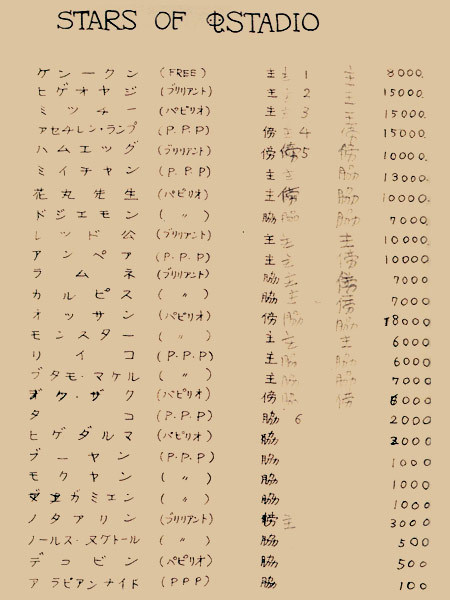 STARS OF ⓆSTADIO
ケン一クン (FREE) 主 主 1 主 8000.
ヒゲオヤジ (ブリリアント) 主 主 2 主 15000.
ミッチー (パピリオ) 主 主 3 主 15000.
アセチレン・ランプ (P.P.P) 傍 主 4 傍 15000.
ハムエッグ (ブリリアント) 傍 傍 5 傍 10000.
ミイチャン (P.P.P) 主 主 脇 13000.
花丸先生 (パピリオ) 主 傍 脇 10000.
ドジエモン (〃) 脇 脇 脇 7000
レッド公 (ブリリアント) 主 主 主 10000
アンペア (P.P.P) 主 主 傍 10000
ラムネ (ブリリアント) 脇 主 傍 7000
カルピス (〃) 脇 主 傍 7000
オッサン (パピリオ) 傍 脇 脇 18000
モンスター (〃) 主 主 主 6000
リイコ (P.P.P) 主 脇 脇 6000
ブタモ・マケル (〃) 主 脇 脇 7000
ザク (パピリオ) 傍 脇 傍 6000
タコ (P.P.P) 脇 6 2000
ヒゲダルマ (パピリオ) 脇 2000
ブーヤン (P.P.P) 脇 1000
モクヤン (〃) 脇 1000
ガミエン (〃) 脇 1000
ノタアリン (ブリリアント) 傍 主 3000
ノールス・ヌケトール (〃) 脇 500
デコビン (パピリオ) 脇 500
アラビアンナイド (PPP) 脇 100